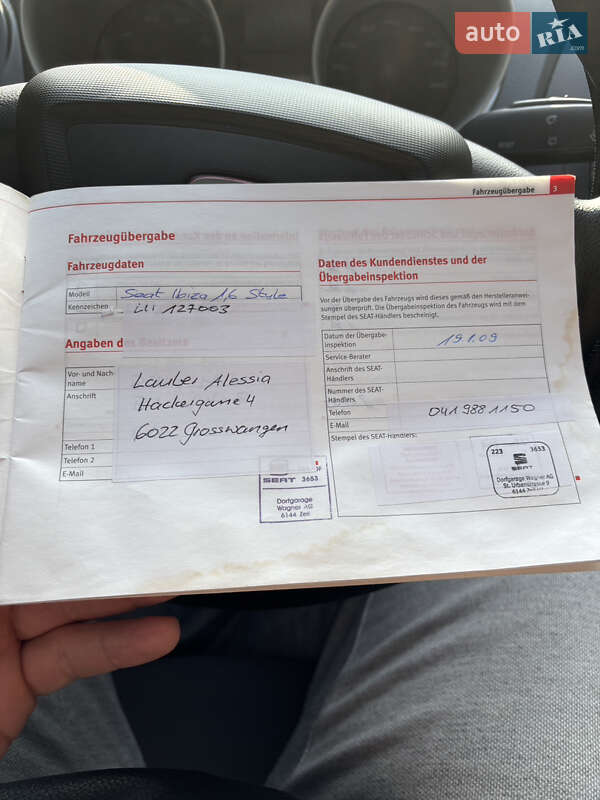 auto RIA .com
Fahrzeugübergabe 3
Fahrzeugübergabe
Fahrzeugdaten
Modell Seat Ibiza 1,6 Style
Kennzeichen LU 127003
Angaben des Besitzers
Vor- und Nach-
name
Anschrift
Lauber Alessia
Hackergasse 4
6022 Grosswangen
Telefon 1
Telefon 2
E-Mail
SEAT 3653
Dorfgarage
Wagner AG
6144 Zell
Daten des Kundendienstes und der
Übergabeinspektion
Vor der Übergabe des Fahrzeugs wird dieses gemäß den Herstelleranwei-
sungen überprüft. Die Übergabeinspektion des Fahrzeugs wird mit dem
Stempel des SEAT-Händlers bescheinigt.
Datum der Übergabe-
inspektion 19.1.09
Service-Berater
Anschrift des SEAT-
Händlers
Nummer des SEAT-
Händlers
Telefon 041 988 11 50
E-Mail
Stempel des SEAT-Händlers:
223 3653
SEAT
Dorfgarage Wagner AG
St. Urbanstrasse 9
6144 Zell